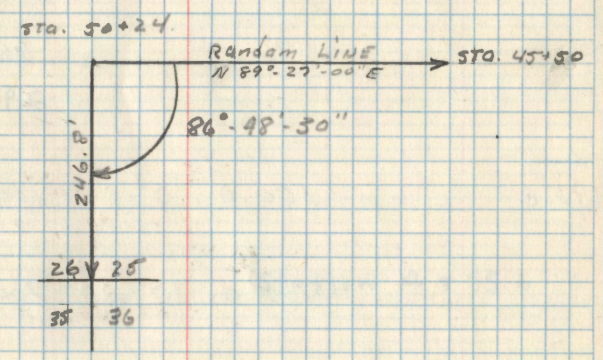 STA. 50+24.
Random LINE
N 89°-27'-00"E
STA. 45+50
86°-48'-30"
246.8'
26 25
35 36